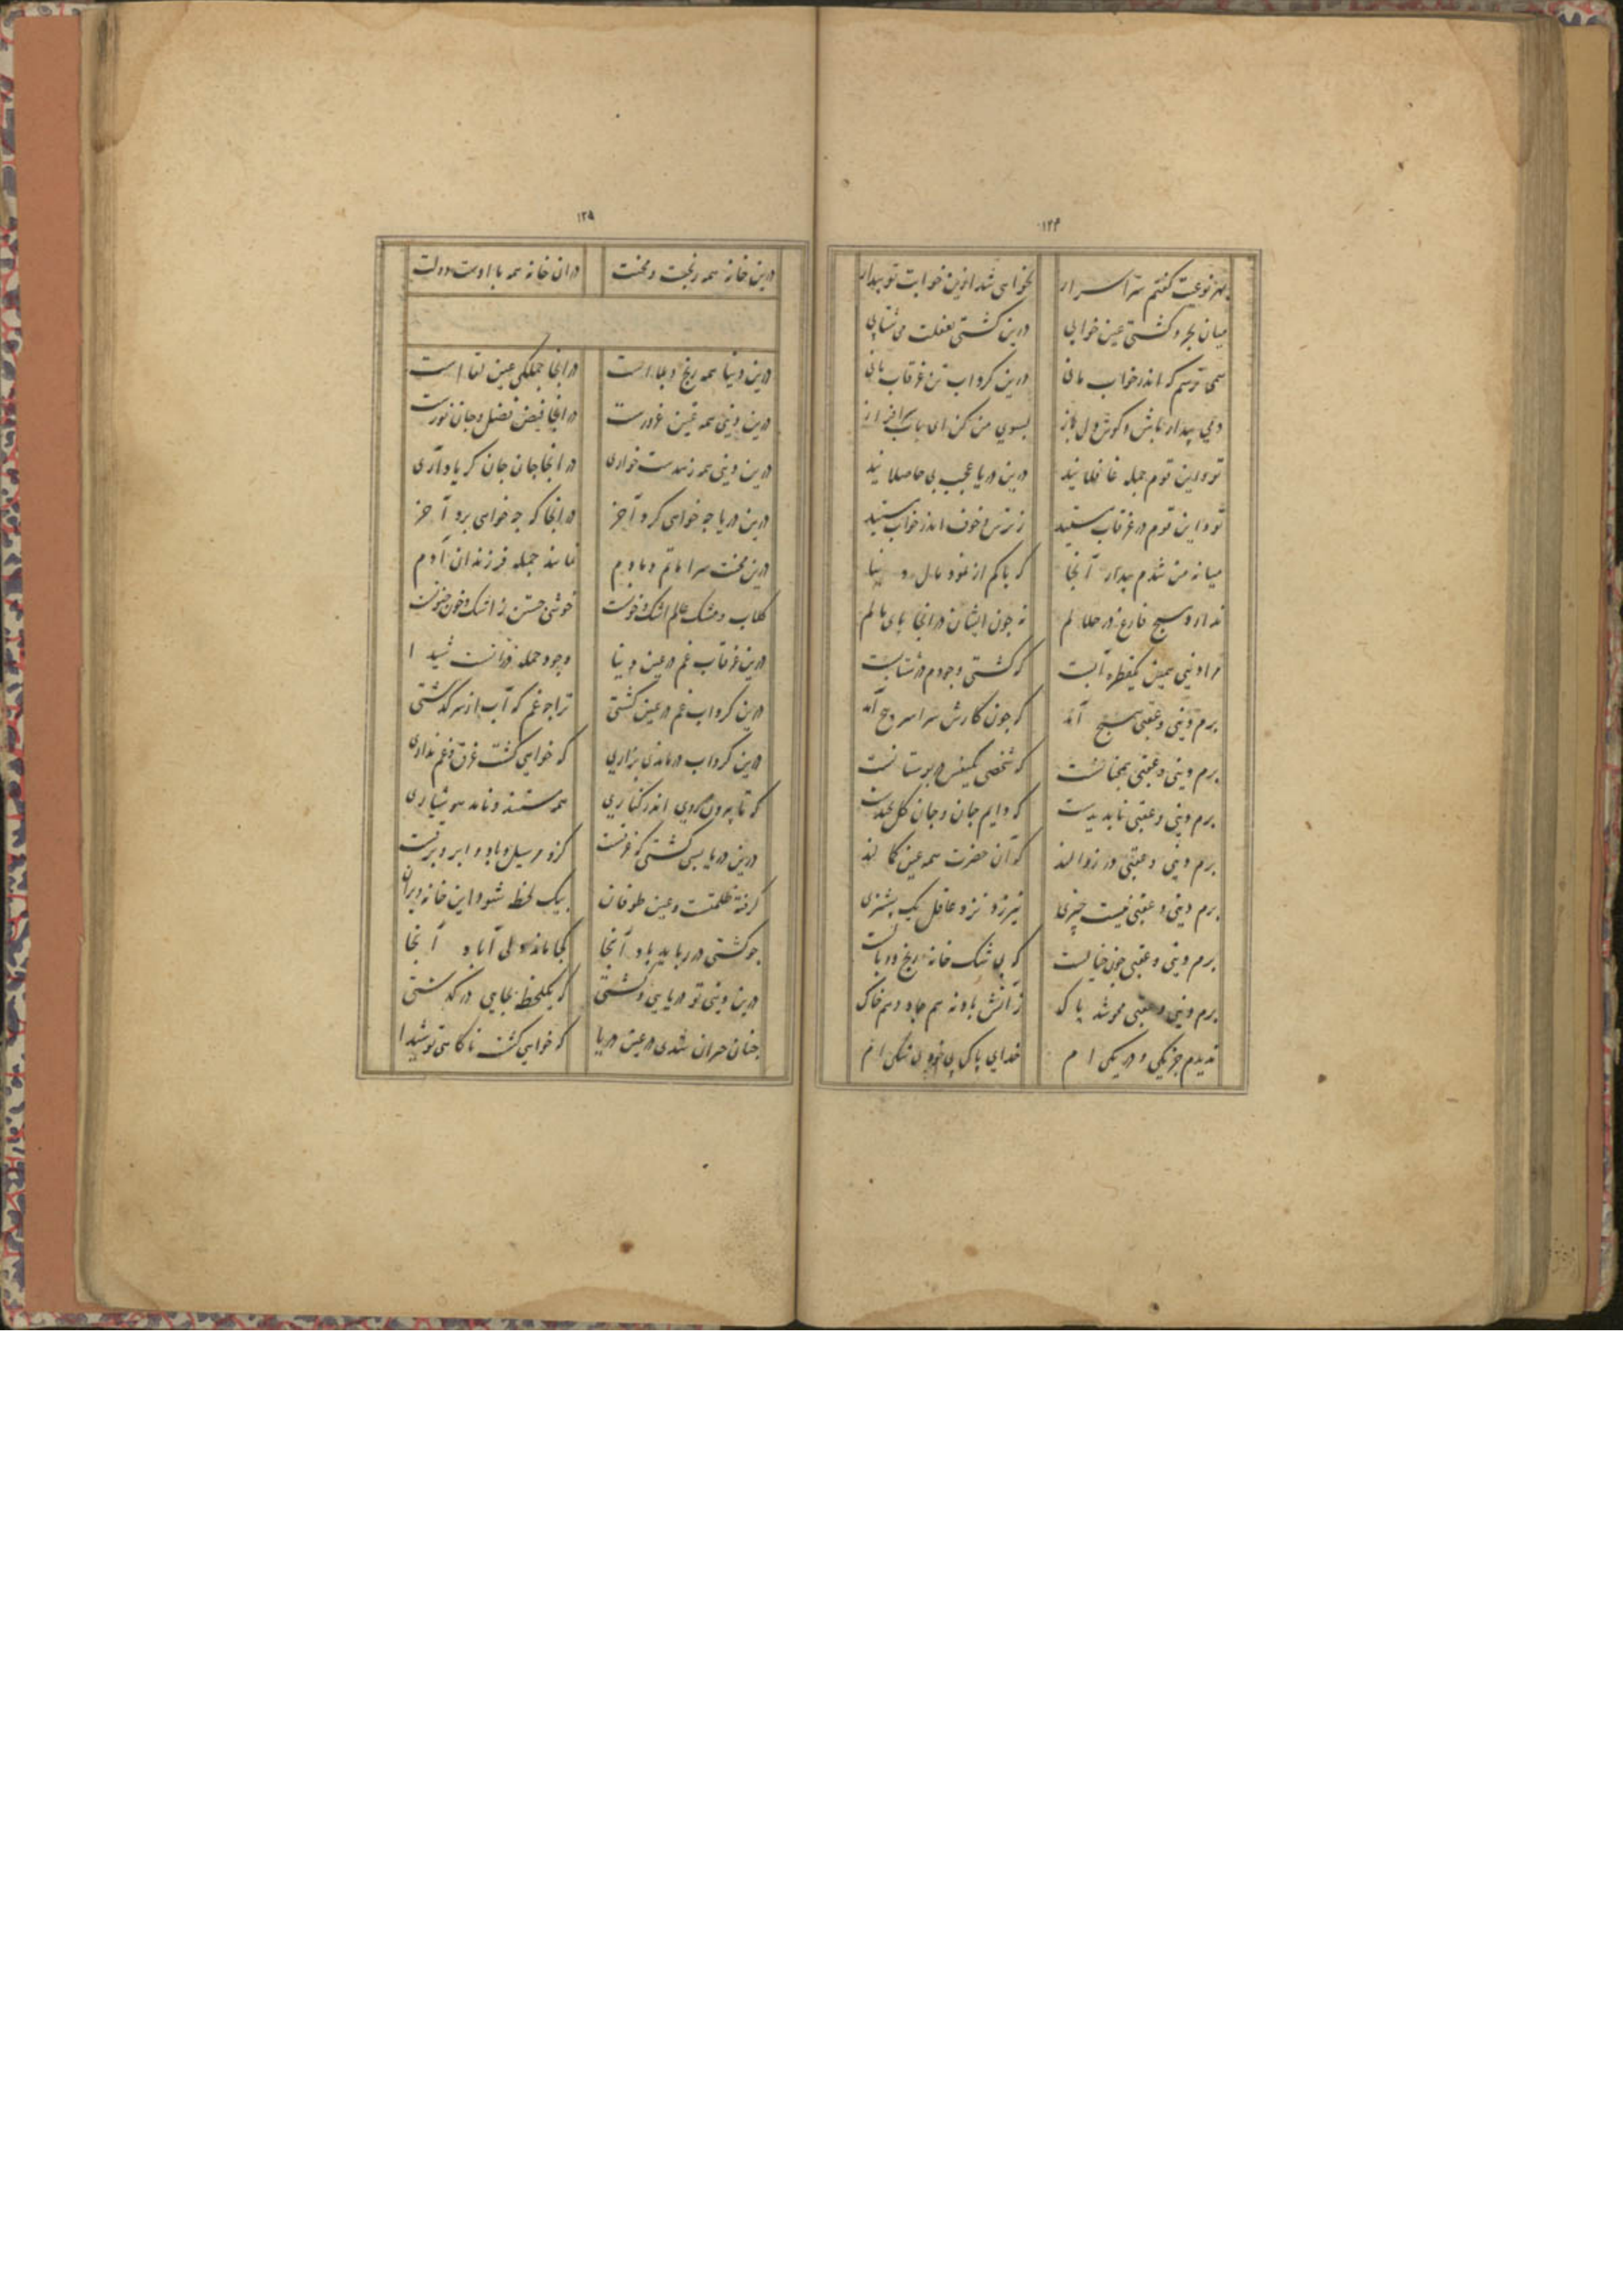 ۱۲۴
بهر نوعیت گفتم سر اسرار نخواهی شد ازین خوابت تو بیدار
میان بحر و کشتی عین خوابی درین کشتی بغفلت می شتابی
همی ترسم که اندر خواب مانی درین گرداب تن غرقاب مانی
دمی بیدار باش و گوش دل باز بسوی من کن ای
تو و این قوم جمله غافلانید درین دریا عجب بی حاصلانید
تو و این قوم در غرقاب هستید ز ترس و خوف اندر خواب هستید
میانه من شدم بیدار آنجا که باکم از نبود مال و دنیا
ندارد هیچ فارغ در نه چون ایشان در اینجا پای مالم
مرا دنیی همین یکقطره آبست که کشتی وجودم در شتابست
برم دنیی و عقبی هیچ آمد که چون کارش سراسر هیچ آمد
برم دنیی و عقبی که شخصی یکنفس در بوستانست
برم دنیی و عقبی ناپدیدست که دایم جان و جان کل بدیدست
برم دنیی و عقبی در زوالند که آن حضرت همه عین کمالند
برم دنیی و عقبی نیست چیزی نیرزد نزد عاقل یک پشیزی
برم دنیی و عقبی چون خیالست که بی شک خانه رنج و وبالست
برم دنیی و عقبی محو شد پاک ز آتش باد نه هم باد و هم خاک
ندیدم جز یکی و در یکی ام خدای پاک بی خود بی شکی ام
۱۲۵
درین خانه همه رنجت و محنت در ان خانه همه با اوست دولت
درین دنیا همه رنج و بلا است در انجا جملگی عین لقا است
درین دنیی همه عین غرورست در انجا فیض فضل و جان نورست
درین دنیی همه زهدست خواری در انجا جان جان گر یاد آری
درین دریا چه خواهی کرد آخر در انجا که چه خواهی برد آخر
درین محنت سرا ماتم دمادم نماند جمله فرزندان آدم
گلاب و مشک عالم اشک و خونست خوشی جستن ز اشک و خون جنونست
درین غرقاب غم در عین دنیا وجود جمله شیدا
درین گرداب غم در عین کشتی ترا چه غم که آب از سر گذشتی
درین گرداب درماندی بزاری که خواهی گشت غرق و غم نداری
که تا بیرون روی اندر کناری همه مستند و نامد هوشیاری
درین دریا بسی کشتی که غرقست کزو مر سیل و باد و ابر و برقست
گرفته ظلمتست و عین طوفان بیک لحظه شود این خانه ویران
چو کشتی در رباید باد آنجا کجا ماند دلی آباد آنجا
درین دنیی تو دریایی و کشتی که یکلحظه بجایی در گذشتی
چنان حیران شدی در عین دریا که خواهی گشت ناگاهی تو شیدا